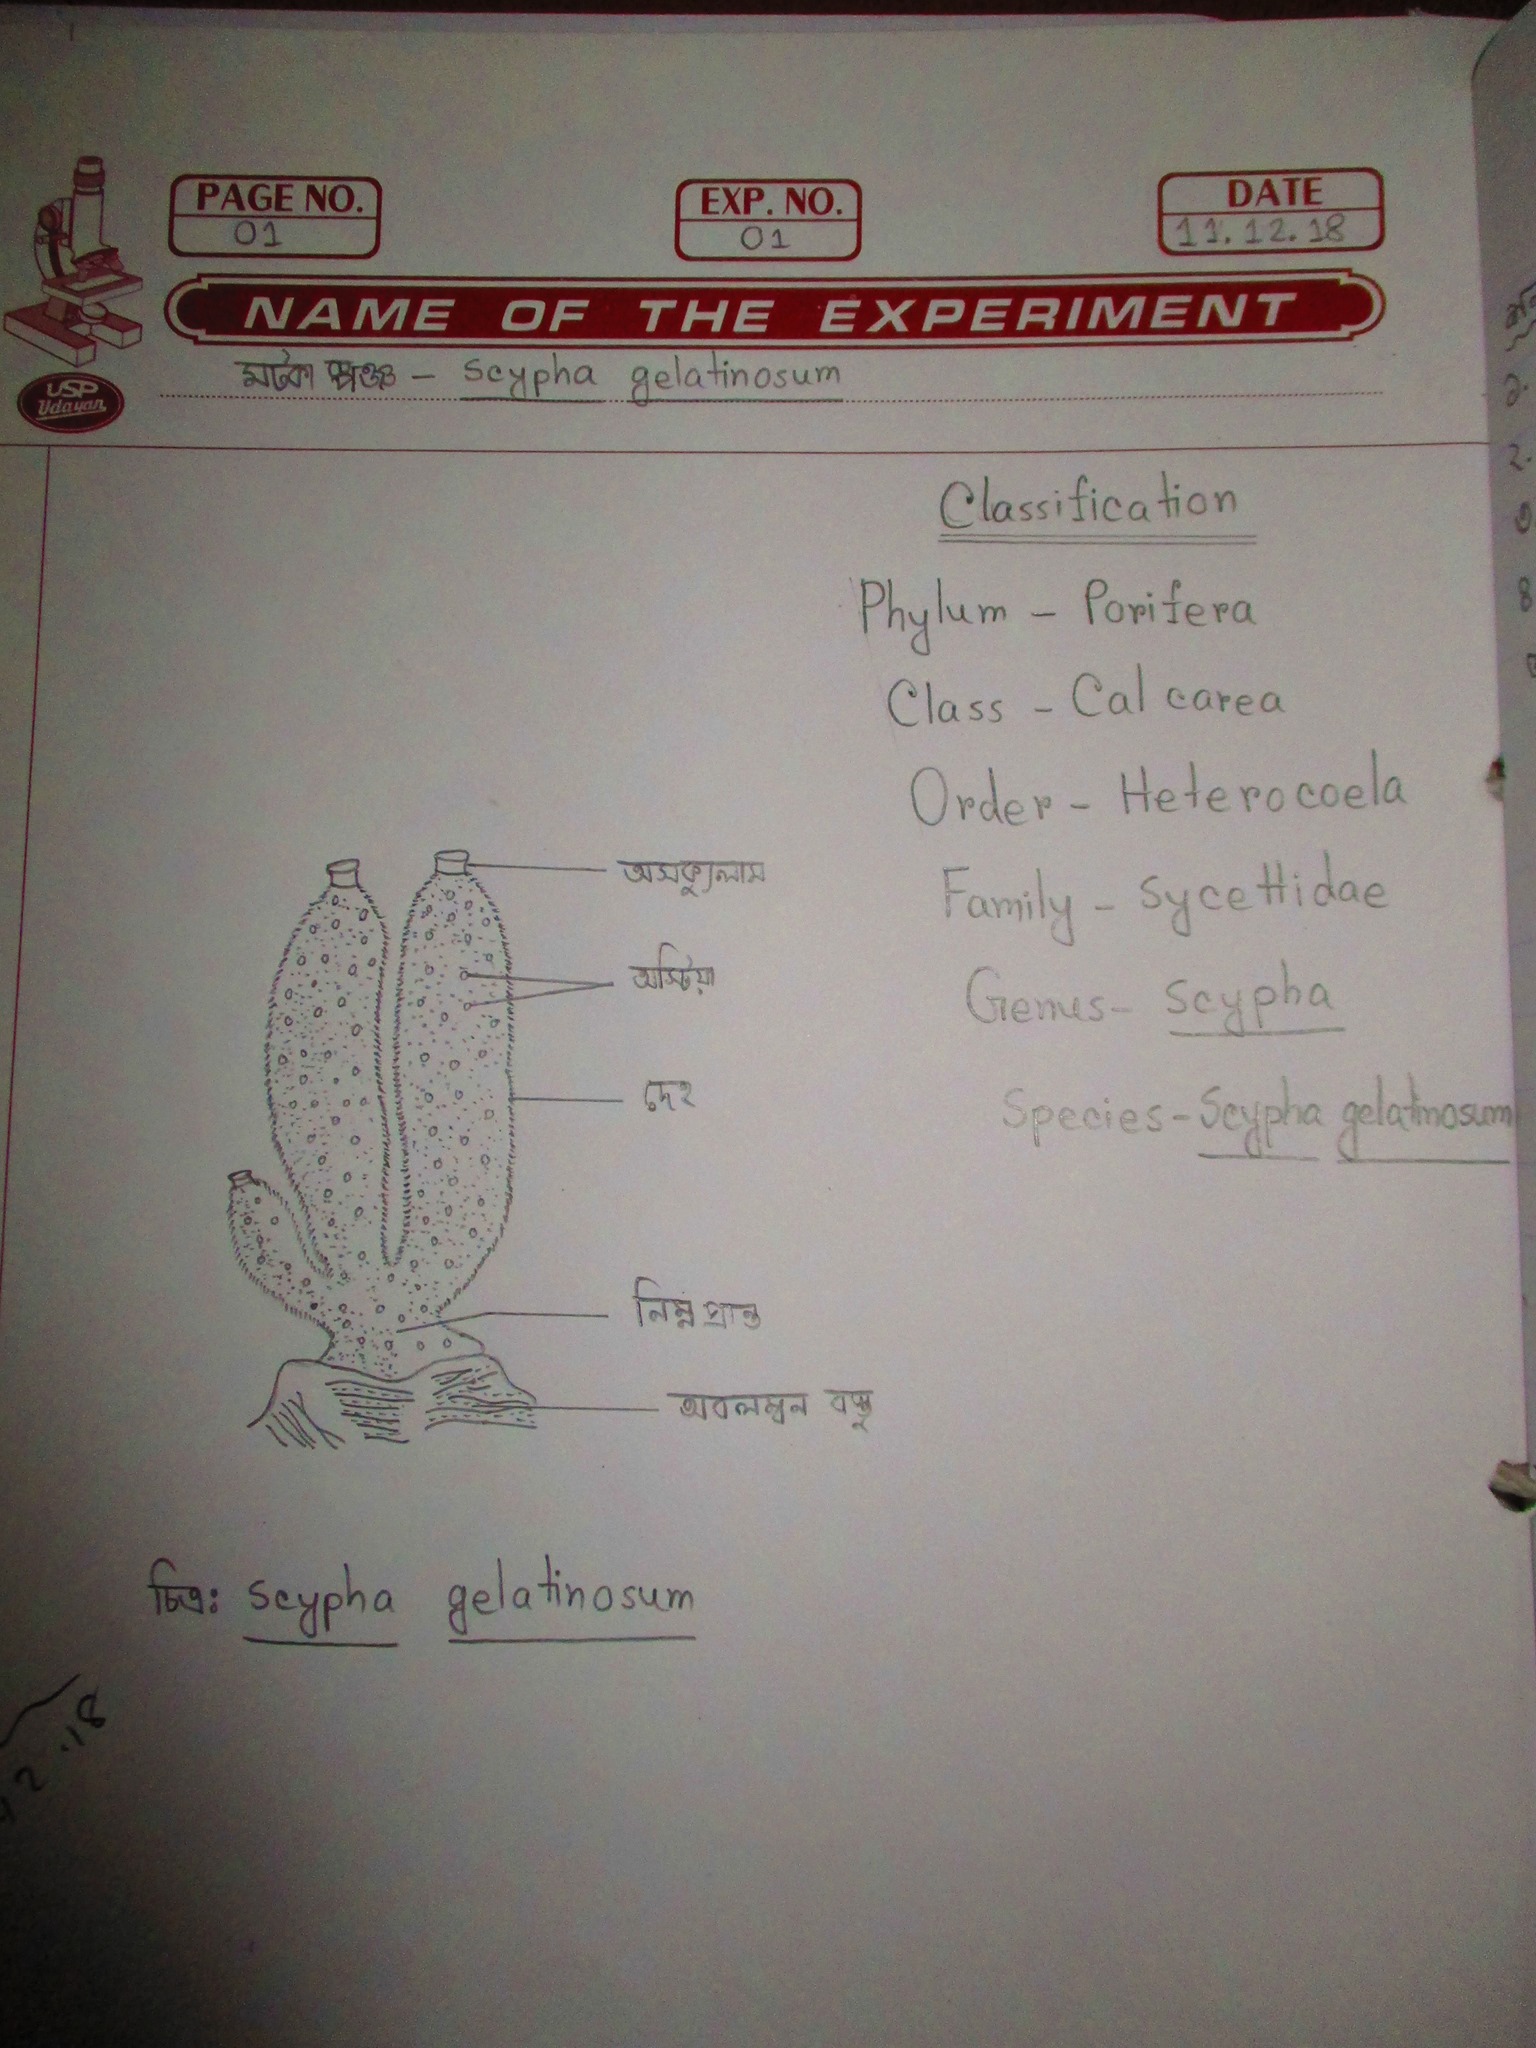 PAGE NO.
01
EXP. NO.
01
DATE
11.12.18
NAME OF THE EXPERIMENT
USP
Udayan
মটকা স্পঞ্জ - Scypha gelatinosum
Classification
Phylum - Porifera
Class - Calcarea
Order - Heterocoela
Family - Sycettidae
Genus - Scypha
Species - Scypha gelatinosum
অসকুলাম
অস্টিয়া
দেহ
নিম্ন প্রান্ত
অবলম্বন বস্তু
চিত্র: Scypha gelatinosum